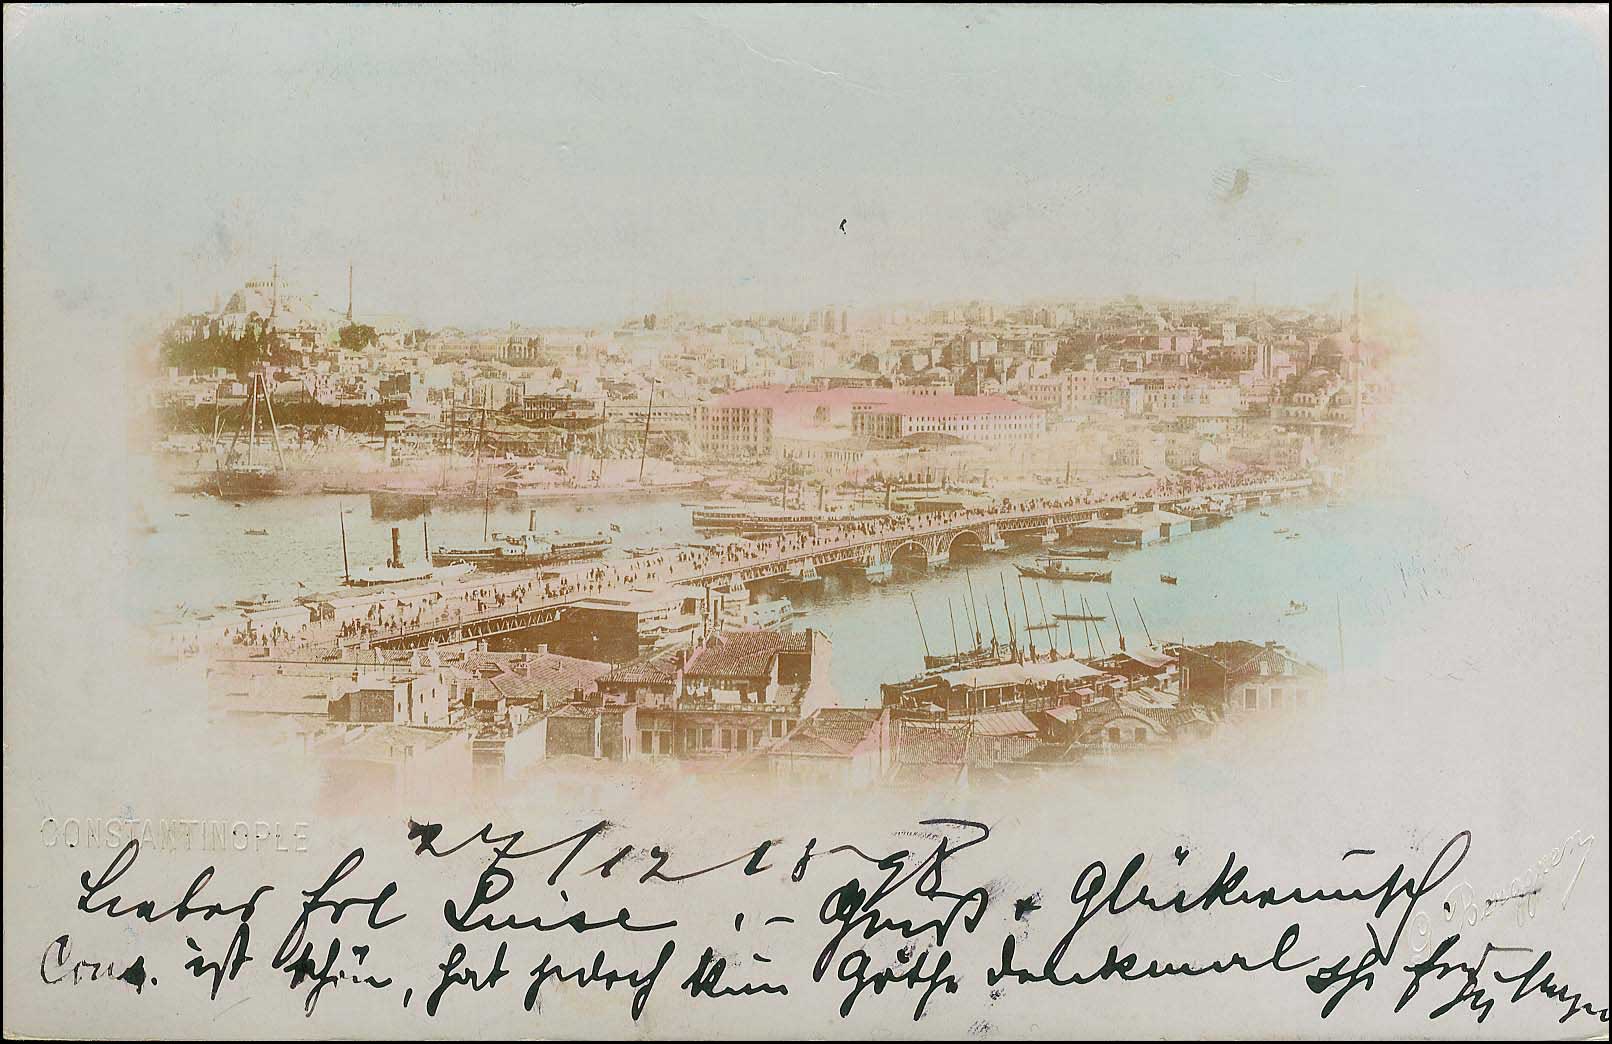 CONSTANTINOPLE
27/12 1898
Liebes Frl Luise. - Gruß + Glückwunsch.
Cons. ist schön, hat jedoch kein Göthe denkmal
G Berggren